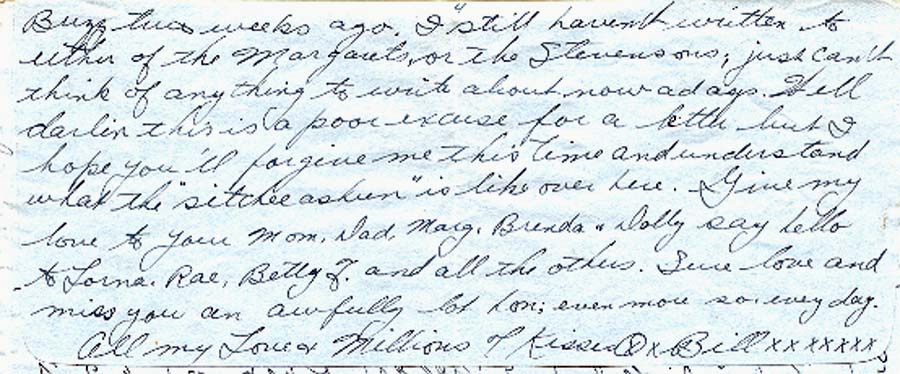 Buzz two weeks ago. I still haven't written to
either of the Margarets, or the Stevensons; just can't
think of anything to write about nowadays. Well
darlin this is a poor excuse for a letter but I
hope you'll forgive me this time and understand
what the "sitchee ashun" is like over here. Give my
love to your Mom, Dad, Marg, Brenda & Dolly say hello
to Lorna, Rae, Betty J. and all the others. Sure love and
miss you an awfully lot hon; even more so every day.
All my Love & Millions of Kisses Ox Bill xxxxxxx